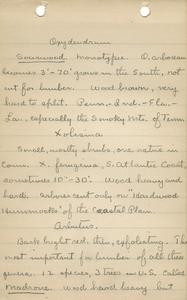 Oxydendrum
Sourwood monotype. O. arboreum
becomes 3"-70' grows in the South, not
cut for lumber. Wood brown, very
hard to split. Penn.-Ind.-Fla.-
La., especially the Smoky Mts. of Tenn.
Xolisma
Small, worthy shrubs, one native in
Conn. X. ferruginea, S. Atlantic Coast,
sometimes 10"-30'. Wood heavy and
hard. Arborescent only on "Hardwood
Hummocks" of the Coastal Plain.
Arbutus.
Bark bright red, thin, exfoliating. The
most important for lumber of all three
genera. 12 species, 3 trees in U.S. called
Madrone. Wood hard, heavy but